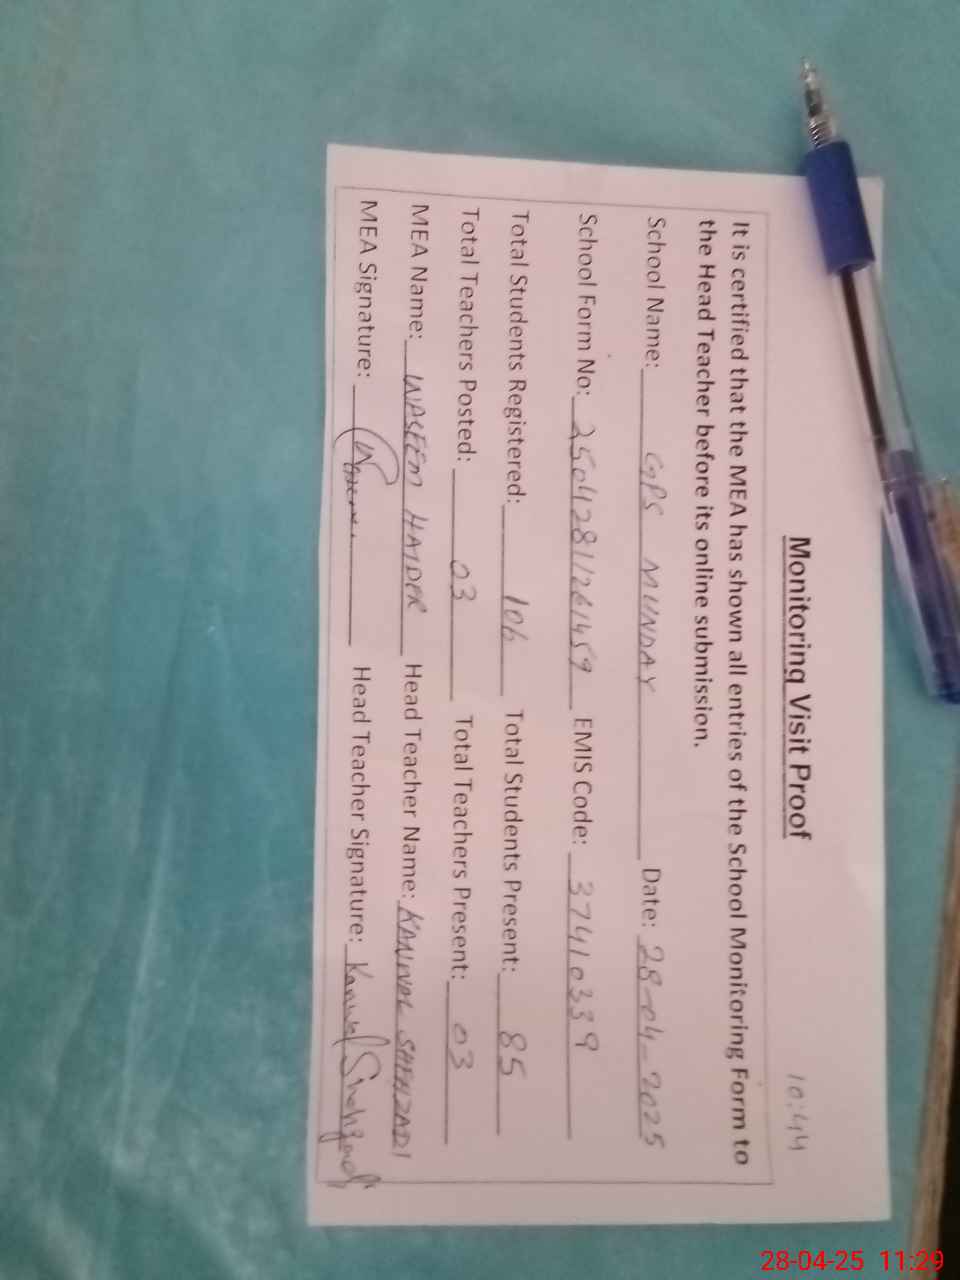 10:44
Monitoring Visit Proof
It is certified that the MEA has shown all entries of the School Monitoring Form to
the Head Teacher before its online submission.
School Name: GPS MUNDAY Date: 28-04-2025
School Form No: 25042811261459 EMIS Code: 37410339
Total Students Registered: 106 Total Students Present: 85
Total Teachers Posted: 03 Total Teachers Present: 03
MEA Name: WASEEM HAIDER Head Teacher Name: KANWAL SHEHZADI
MEA Signature: Waseem Head Teacher Signature: Kanwal Shehzadi
28-04-25 11:29